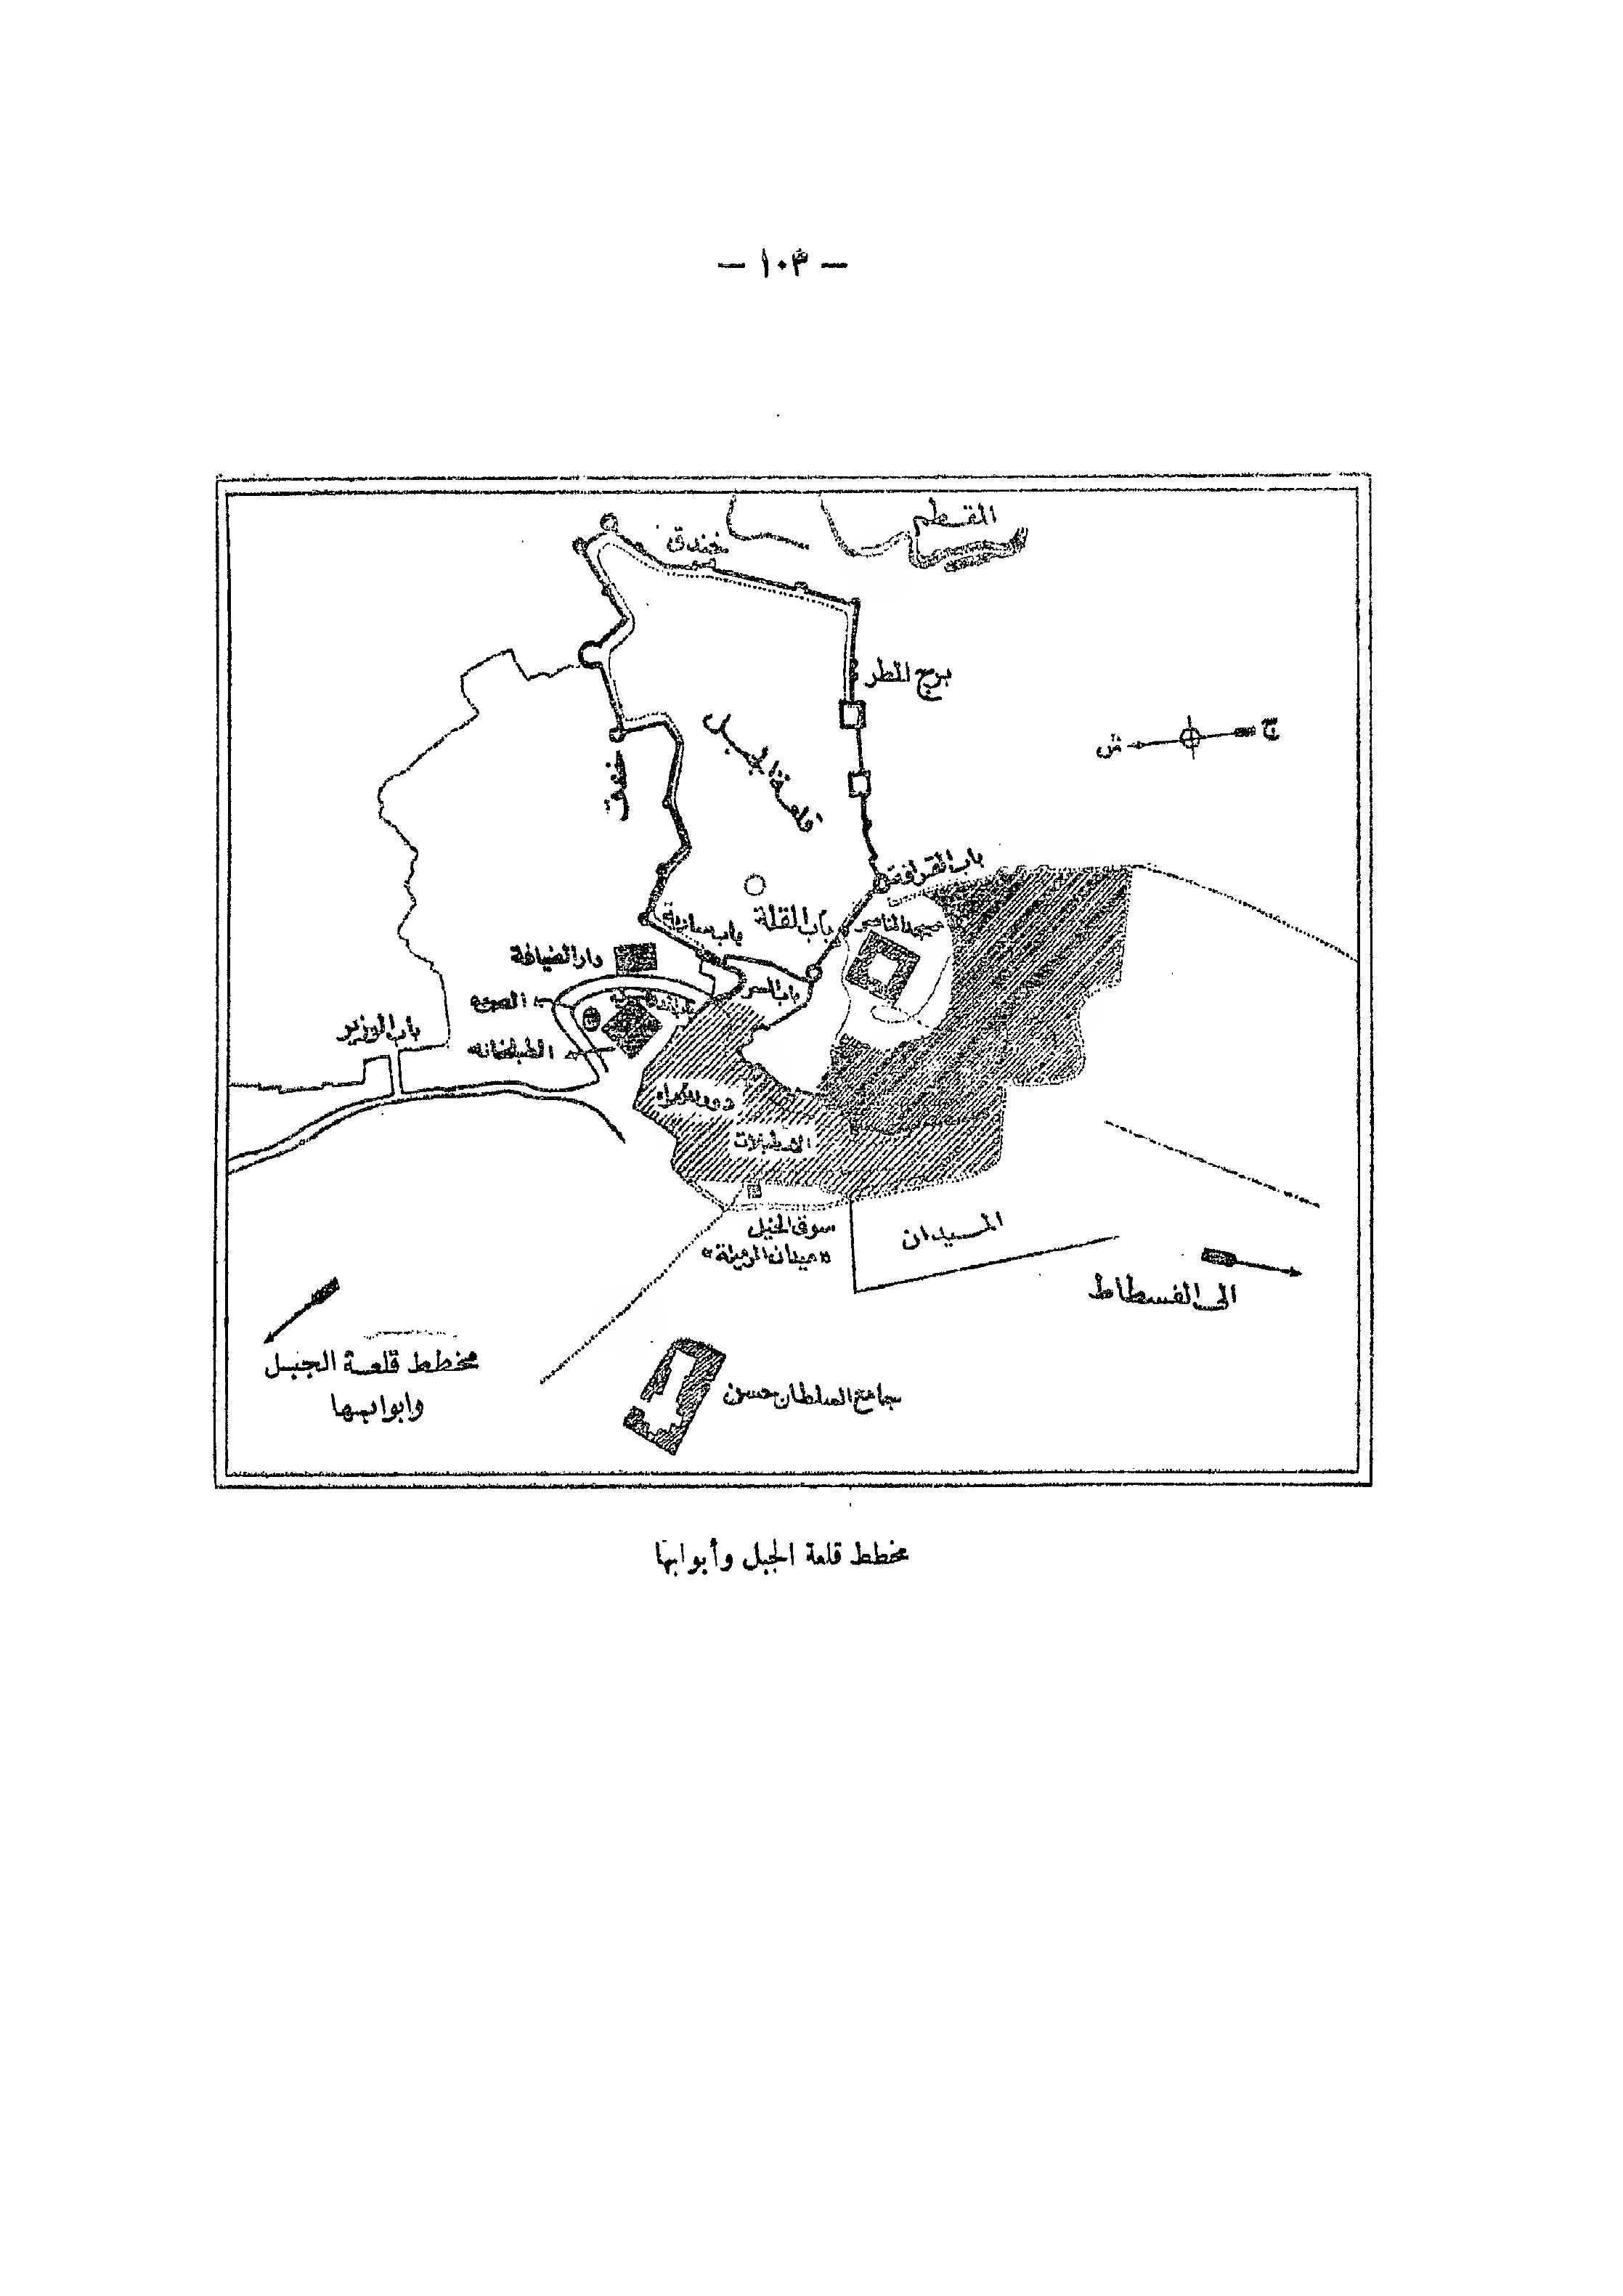 — ١٠٣ —
المقطم
خندق
برج المطر
ج
ش
قلعة الجبل
خندق
باب القرافة
مسجد الناصر
باب القلة
باب سارية
دار الضيافة
باب السر
الصوه
باب الوزير
الطبلخانه
دور الأمراء
الاسطبلات
سوق الخيل
«ميدان الرميلة»
الميدان
الى الفسطاط
مخطط قلعة الجبل
وابوابها
جامع السلطان حسن
مخطط قلعة الجبل وأبوابها